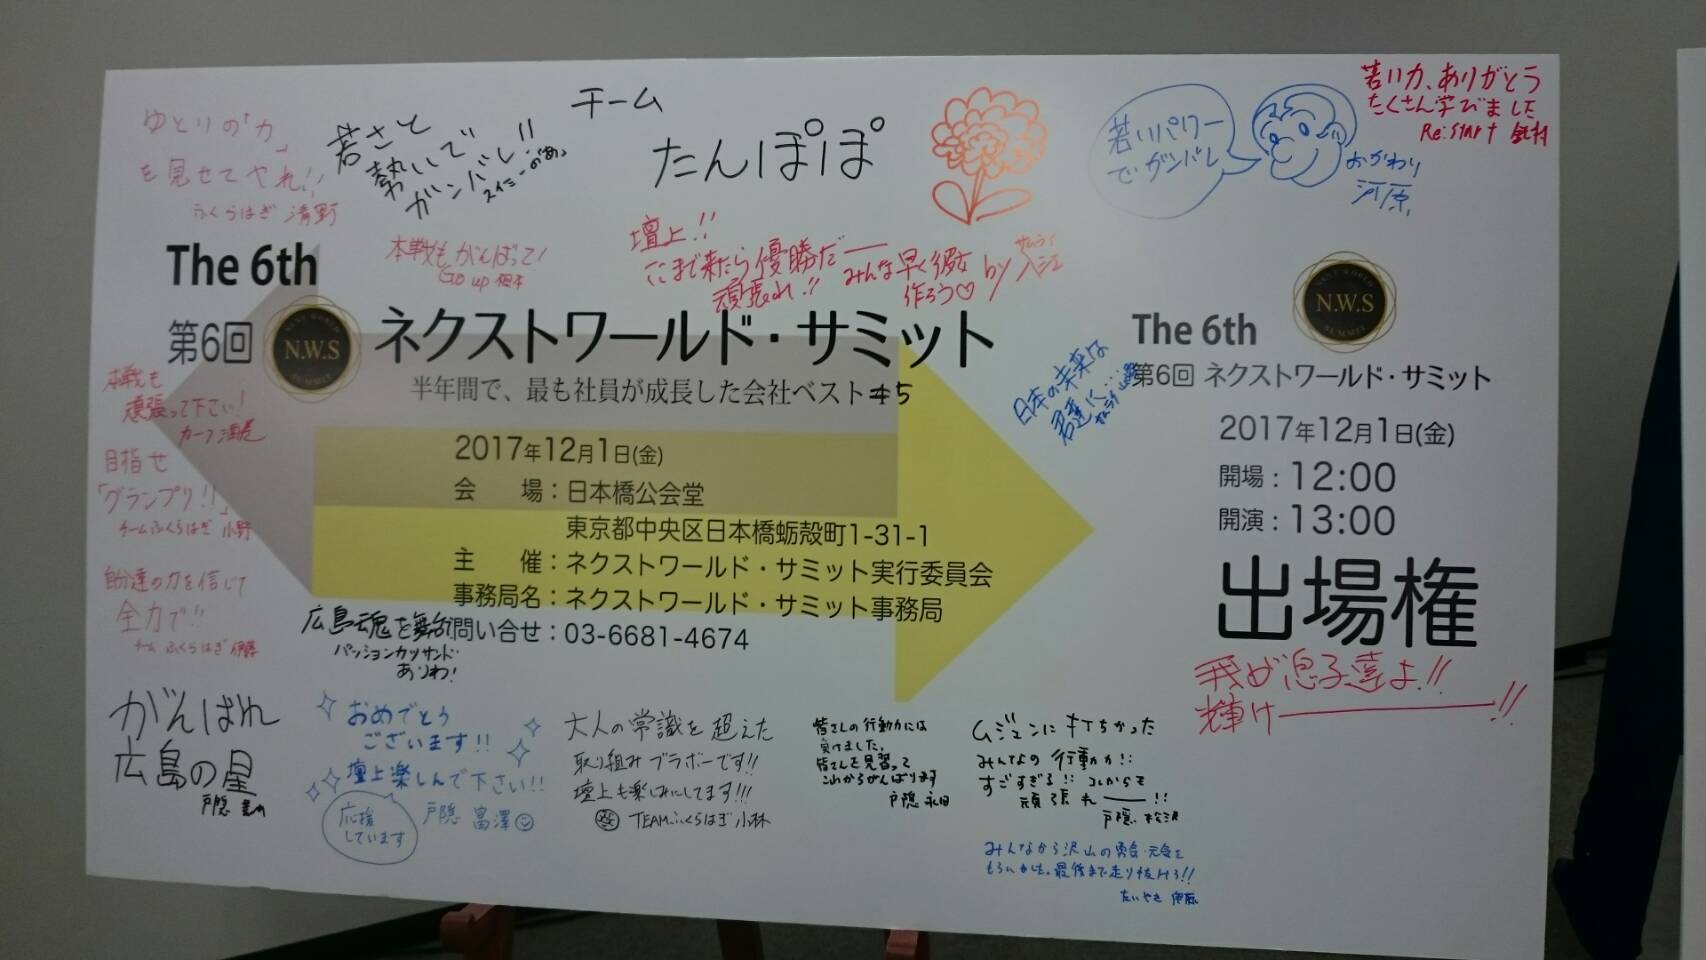 チーム
たんぽぽ
ゆとりの「力」
を見せてやれ!!
ふくらはぎ 清野
若さと
勢いで
ガンバレ!!
若いパワー
でガンバレ
おかわり
河原
若い力、ありがとう
たくさん学びました
Re:start
本戦もがんばって!
Go up 根本
壇上!!
ここまで来たら優勝だー
頑張れ!!
みんな早く彼女
作ろう♡
by
The 6th
第6回
N.W.S
NEXT WORLD
SUMMIT
ネクストワールド・サミット
半年間で、最も社員が成長した会社ベスト5
2017年12月1日(金)
会 場：日本橋公会堂
東京都中央区日本橋蛎殻町1-31-1
主 催：ネクストワールド・サミット実行委員会
事務局名：ネクストワールド・サミット事務局
問い合せ：03-6681-4674
日本の未来は
君達に…
NEXT WORLD
N.W.S
SUMMIT
The 6th
第6回 ネクストワールド・サミット
2017年12月1日(金)
開場：12:00
開演：13:00
出場権
我が息子達よ!!
輝けー!!
本戦も
頑張って下さい!
目指せ
「グランプリ!!」
チームふくらはぎ 小野
自分達の力を信じて
全力で!!
チームふくらはぎ 伊藤
広島魂を
パッションカツサンド
ありわ!
がんばれ
広島の星
戸隠
おめでとう
ございます!!
壇上楽しんで下さい!!
応援
しています
戸隠 富澤
大人の常識を超えた
取り組みブラボーです!!
壇上も楽しみにしてます!!!
TEAMふくらはぎ 小林
皆さんの行動力には
負けました。
皆さんを見習って
これからがんばります
戸隠 永田
ムジュンに打ちかった
みんなの行動力!!
すごすぎる!! これからも
頑張れー!!
戸隠 松沢
みんなから沢山の勇気・元気を
もらいました。最後まで走り抜けろ!!
たいやき